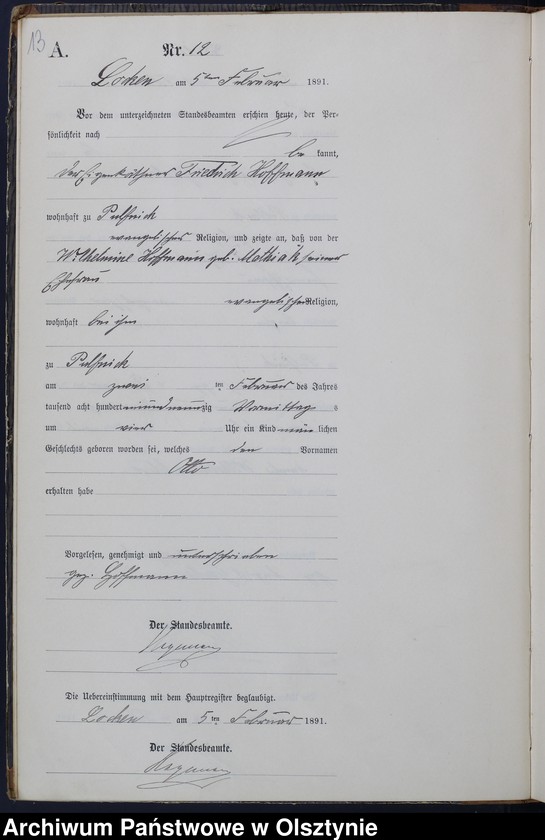 13
A.
Nr. 12
Locken am 5ten Februar 1891.
Vor dem unterzeichneten Standesbeamten erschien heute, der Per-
sönlichkeit nach
be kannt,
der Eigenkäthner Friedrich Hoffmann
wohnhaft zu Pulfnick
evangelischer Religion, und zeigte an, daß von der
Wilhelmine Hoffmann geb. Mathiak seiner
Ehefrau
evangelischer Religion,
wohnhaft bei ihm
zu Pulfnick
am zwei ten Februar des Jahres
tausend acht hundert einundneunzig Vormittag s
um vier Uhr ein Kind männ lichen
Geschlechts geboren worden sei, welches den Vornamen
Otto
erhalten habe
Vorgelesen, genehmigt und unterschrieben
gez. Hoffmann
Der Standesbeamte.
Die Uebereinstimmung mit dem Hauptregister beglaubigt.
Locken am 5ten Februar 1891.
Der Standesbeamte.
Archiwum Państwowe w Olsztynie